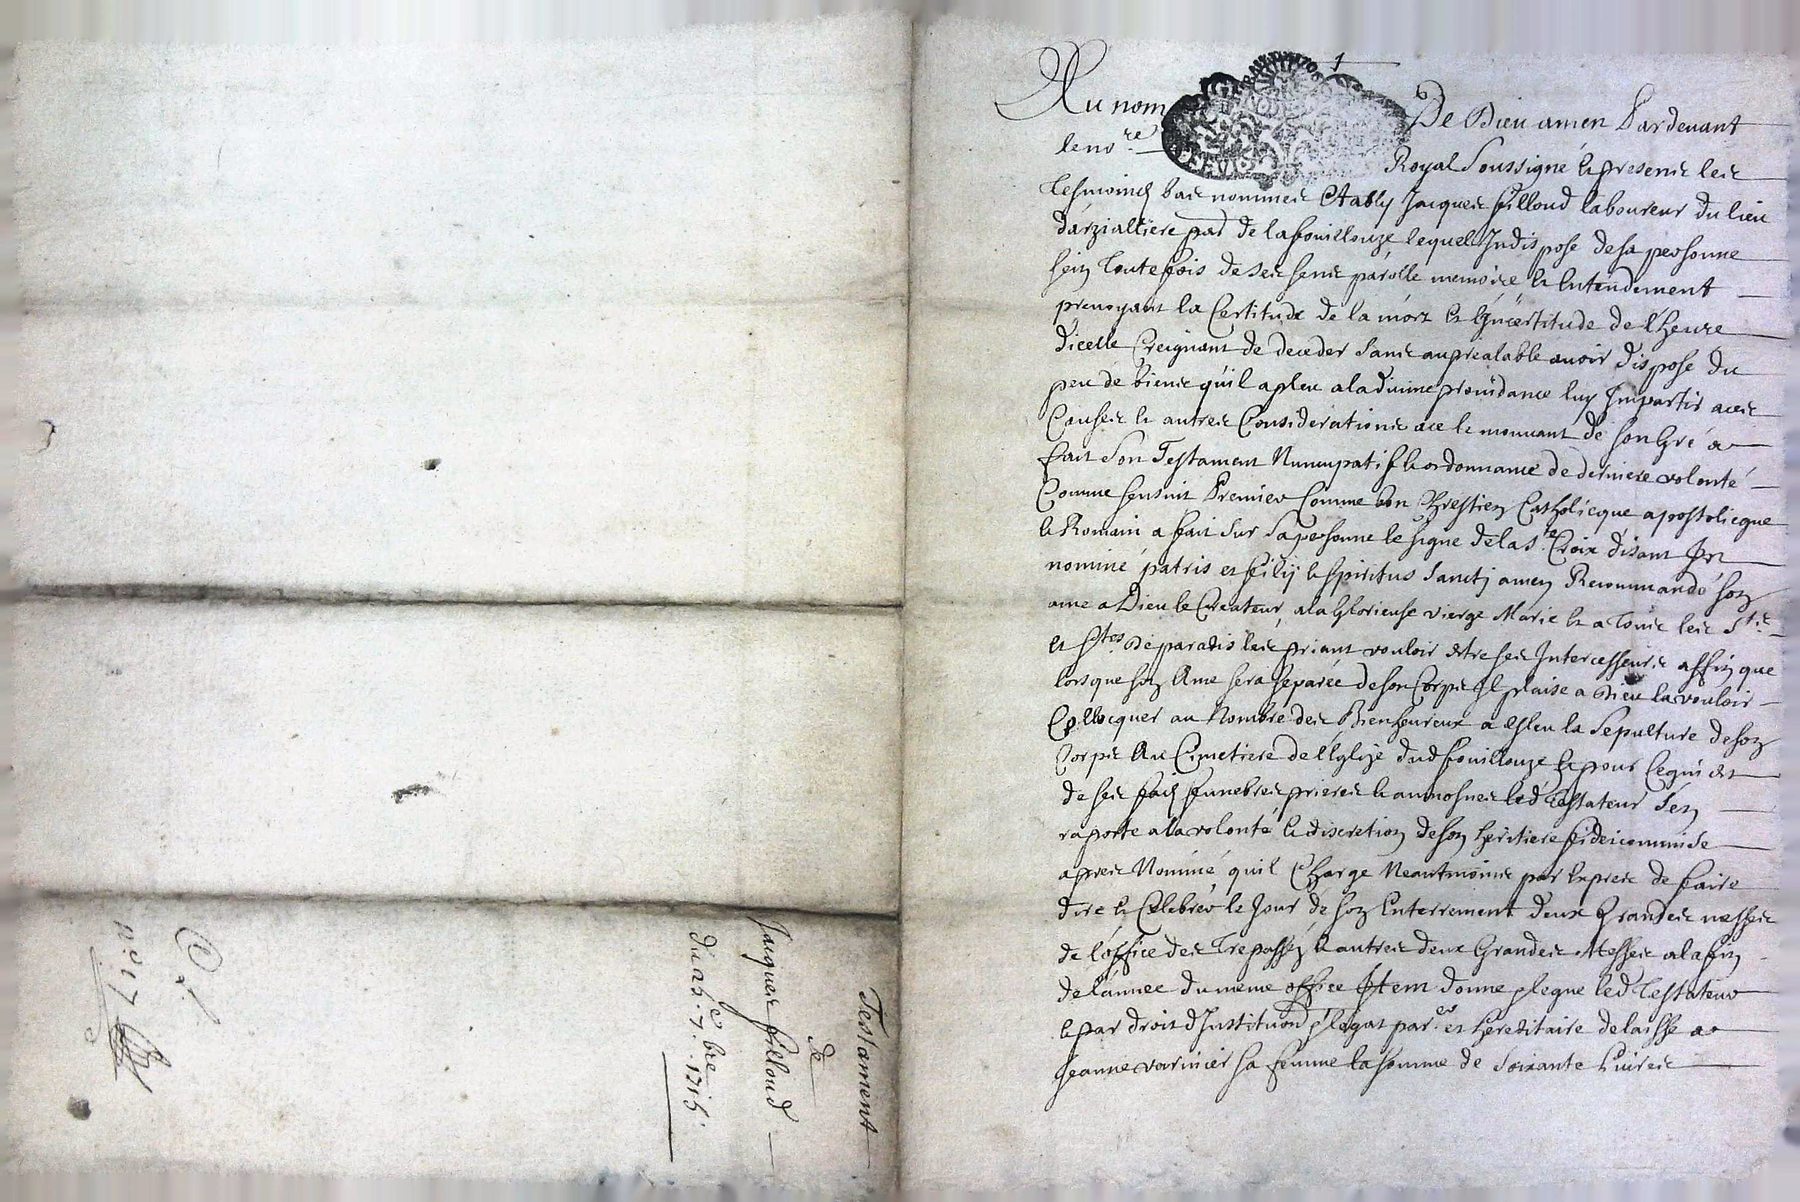 Testament
de
Jacques filloud
du 25.e 7.bre 1715.
n.o 17
1
Au nom De Dieu amen Pardevant
le no.re Royal Soussigné & presens les
tesmoins bas nommes Estably Jacques filloud laboureur du lieu
d'arzialliere par de lafouillouze lequel Indispose desa personne
sein toutefois de ses sens parolle memoire & Entendement
prevoyant la Certitude de la mort et lIncertitude de l'heure
dicelle Creignant de deceder sans aupréalable avoir dispose du
peu de biens qu'il a pleu ala divine providance luy Impartir a ces
Causes & autres Considerations a ce le mouvant de son Gré a
fait Son Testament Nuncupatif & ordonnance de derniere volonté
Comme sensuit Premier Comme bon Chrestien Catholicque apostolicque
& Romain a fait sur sa personne le signe de la S.te Croix disant In
nomine patris et filij & spiritus Sancti amen Recommandé son
ame a Dieu le Createur, ala Glorieuse vierge Marie & a tous les S.ts
et S.tes de paradis les priant vouloir estre ses Intercesseurs affin que
lorsque son Ame sera separée de son Corps Il plaise a Dieu la vouloir
Collocquer au Nombre des Bienheureux a esleu la Sepulture deson
Corps Au Cimetiere de l'Eglize dud fouillouze & pour Cequi est
de ses funebres prieres & aumosnes led Testateur s'en
raporte ala volonté & discretion deson heritiere fideicommise
apres Nommé quil Charge Neantmoins par Expres de faire
dire & Celebrer le Jour de son Enterrement deux Grandes messes
de l'office des Trepassés & autres deux Grandes Messes ala fin
de l'année du meme office Item donne & legue led Testateur
& par droit d'Institution & legat par.er et hereditaire delaisse a
Jeanne varinier sa femme la somme de Soixante Livres